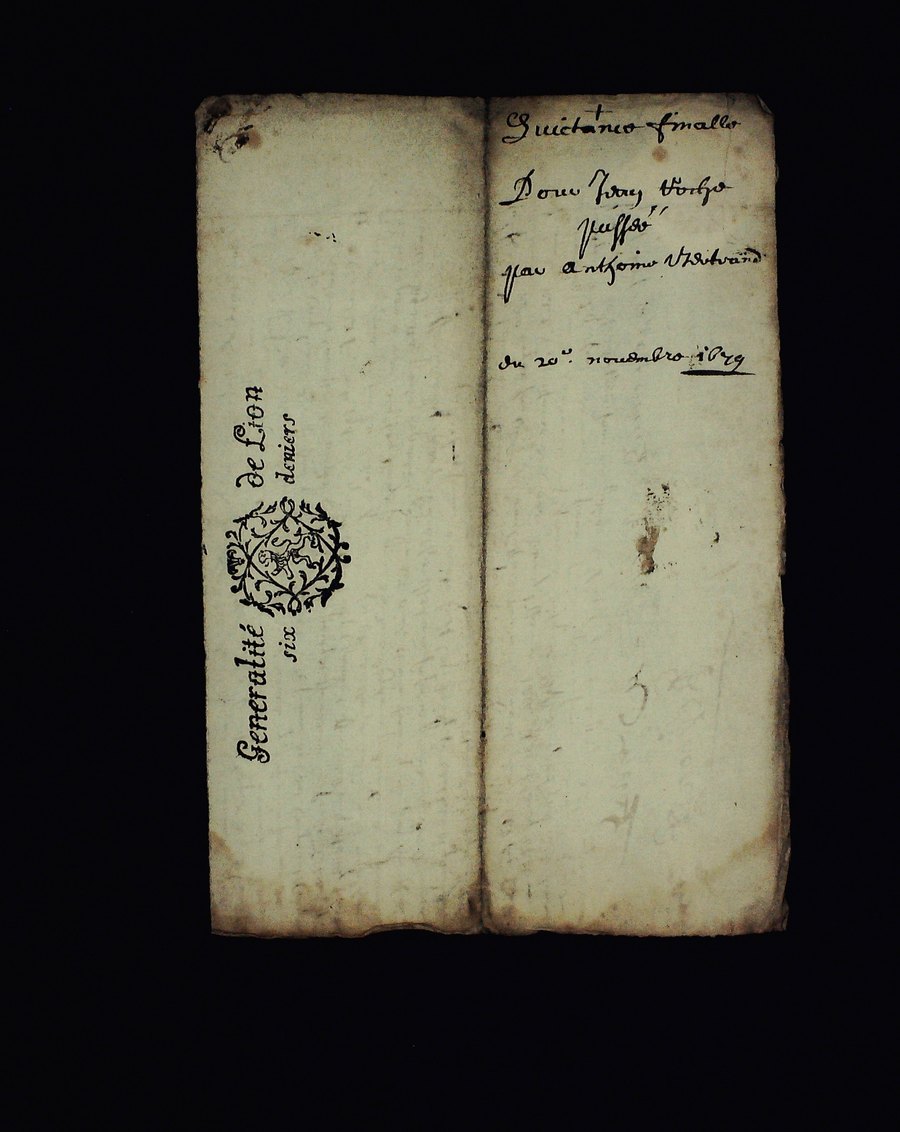 Generalité de Lion
six deniers
Quictance finalle
Pour Jean Roche
passéé
par Anthoine Bertrand
du 20e. novembre 1679